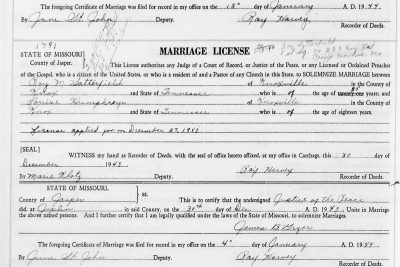 The foregoing Certificate of Marriage was filed for record in my office on the 12" day of January A. D. 1944.
By June St. John Deputy. Ray Harvey
Recorder of Deeds.
1791
STATE OF MISSOURI
County of Jasper
ss.
MARRIAGE LICENSE
This License authorizes any Judge of a Court of Record, or Justice of the Peace, or any Licensed or Ordained Preacher
of the Gospel, who is a citizen of the United States, or who is resident of and a Pastor of any Church in this State, to SOLEMNIZE MARRIAGE between
Roy M. Satterfield of Knoxville in the County
of Knox and State of Tennessee who is of the age of twenty one years; and
Louise Humphreys of Knoxville in the County
of Knox and State of Tennessee who is of the age of
License applied for on December 27, 1943
[SEAL] WITNESS my hand as Recorder of Deeds, with the seal of office hereto affixed, at my office in Carthage, this 30 day of
December 1943 Ray Harvey
By Marie Klotz Deputy. Recorder of Deeds.
STATE OF MISSOURI
County of Jasper
ss.
This is to certify that the undersigned Justice of the Peace
did, at Joplin in said County, on the 30th day of Dec A. D. 1943, Unite in Marriage
the above named persons. And I further certify that I am legally qualified under the laws of the State of Missouri, to solemnize Marriages.
James B.
The foregoing Certificate of Marriage was filed for record in my office on the 4" day of January A. D. 1944
By June St. John Deputy. Ray Harvey
Recorder of Deeds.